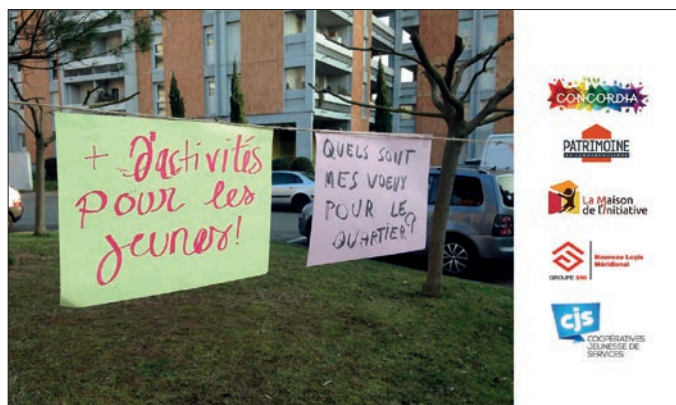 + D'activités
pour les
jeunes!
QUELS SONT
MES VOEUX
POUR LE
QUARTIER?
CONCORDIA
PATRIMOINE
La Maison
de l'Initiative
GROUPE SNI
Nouveau Logis
Méridional
cjs
COOPÉRATIVES
JEUNESSE DE
SERVICES